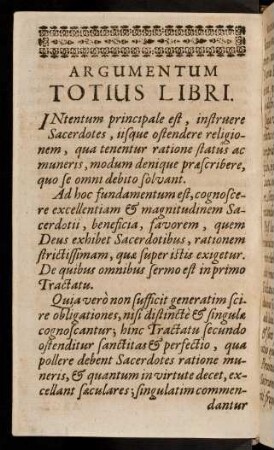 ARGUMENTUM
TOTIUS LIBRI.
INtentum principale est, instruere
Sacerdotes, iisque ostendere religio-
nem, qua tenentur ratione status ac
muneris, modum denique præscribere,
quo se omni debito solvant.
Ad hoc fundamentum est, cognosce-
re excellentiam & magnitudinem Sa-
cerdotii, beneficia, favorem, quem
Deus exhibet Sacerdotibus, rationem
strictissimam, quæ super istis exigetur.
De quibus omnibus sermo est in primo
Tractatu.
Quia verò non sufficit generatim sci-
re obligationes, nisi distinctè & singulæ
cognoscantur; hinc Tractatu secundo
ostenditur sanctitas & perfectio, qua
pollere debent Sacerdotes ratione mu-
neris, & quantum in virtute decet, ex-
cellant sæculares; singulatim commen-
dantur